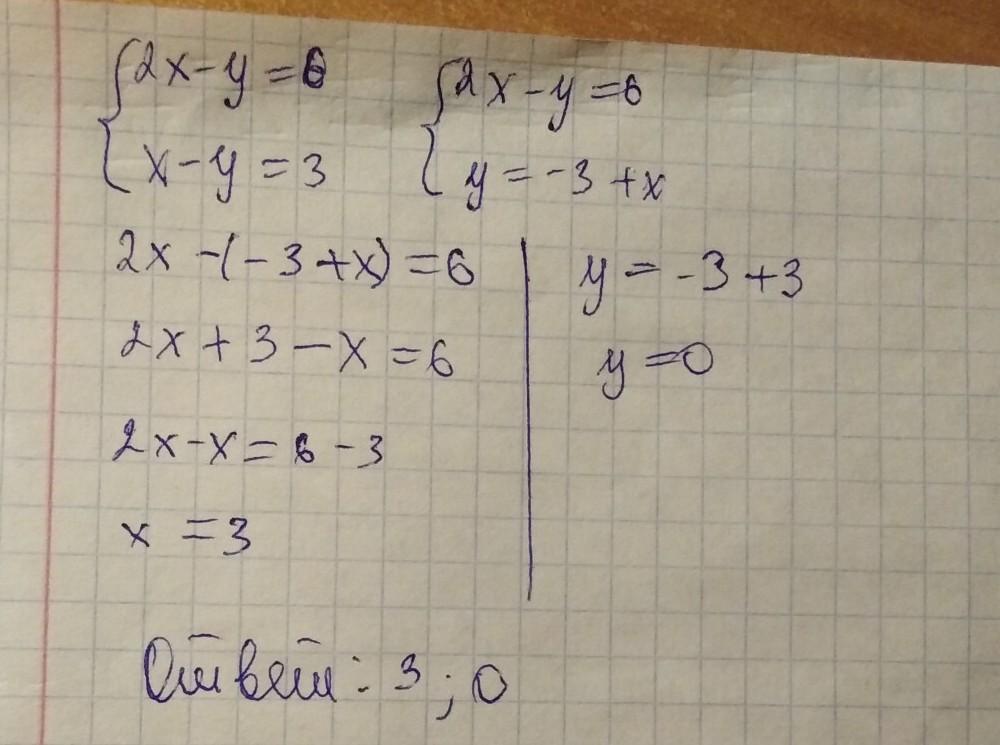 {2x-y=6
x-y=3
{2x-y=6
y=-3+x
2x-(-3+x)=6
2x+3-x=6
2x-x=6-3
x=3
y=-3+3
y=0
Ответ: 3; 0